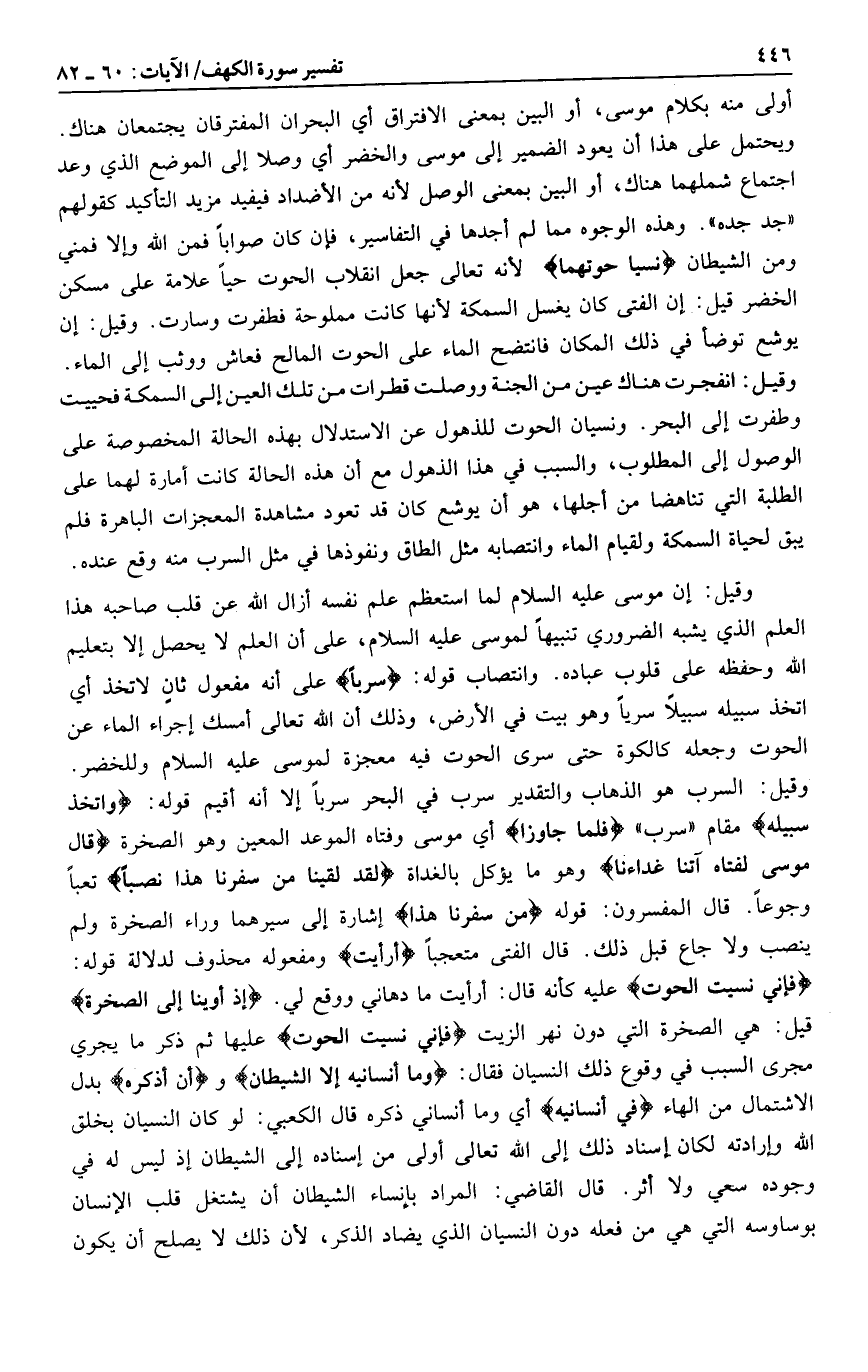 ٤٤٦
تفسير سورة الكهف/ الآيات: ٦٠ ـ ٨٢
أولى منه بكلام موسى، أو البين بمعنى الافتراق أي البحران المفترقان يجتمعان هناك.
ويحتمل على هذا أن يعود الضمير إلى موسى والخضر أي وصلا إلى الموضع الذي وعد
اجتماع شملهما هناك، أو البين بمعنى الوصل لأنه من الأضداد فيفيد مزيد التأكيد كقولهم
«جد جده». وهذه الوجوه مما لم أجدها في التفاسير، فإن كان صواباً فمن الله وإلا فمني
ومن الشيطان ﴿نسيا حوتهما﴾ لأنه تعالى جعل انقلاب الحوت حياً علامة على مسكن
الخضر قيل: إن الفتى كان يغسل السمكة لأنها كانت مملوحة فطفرت وسارت. وقيل: إن
يوشع توضأ في ذلك المكان فانتضح الماء على الحوت المالح فعاش ووثب إلى الماء.
وقيل: انفجرت هناك عين من الجنة ووصلت قطرات من تلك العين إلى السمكة فحييت
وطفرت إلى البحر. ونسيان الحوت للذهول عن الاستدلال بهذه الحالة المخصوصة على
الوصول إلى المطلوب، والسبب في هذا الذهول مع أن هذه الحالة كانت أمارة لهما على
الطلبة التي تناهضا من أجلها، هو أن يوشع كان قد تعود مشاهدة المعجزات الباهرة فلم
يبق لحياة السمكة ولقيام الماء وانتصابه مثل الطاق ونفوذها في مثل السرب منه وقع عنده.
وقيل: إن موسى عليه السلام لما استعظم علم نفسه أزال الله عن قلب صاحبه هذا
العلم الذي يشبه الضروري تنبيهاً لموسى عليه السلام، على أن العلم لا يحصل إلا بتعليم
الله وحفظه على قلوب عباده. وانتصاب قوله: ﴿سرباً﴾ على أنه مفعول ثانٍ لاتخذ أي
اتخذ سبيله سبيلاً سرياً وهو بيت في الأرض، وذلك أن الله تعالى أمسك إجراء الماء عن
الحوت وجعله كالكوة حتى سرى الحوت فيه معجزة لموسى عليه السلام وللخضر.
وقيل: السرب هو الذهاب والتقدير سرب في البحر سرباً إلا أنه أقيم قوله: ﴿واتخذ
سبيله﴾ مقام «سرب» ﴿فلما جاوزا﴾ أي موسى وفتاه الموعد المعين وهو الصخرة ﴿قال
موسى لفتاه آتنا غداءنا﴾ وهو ما يؤكل بالغداة ﴿لقد لقينا من سفرنا هذا نصباً﴾ تعباً
وجوعاً. قال المفسرون: قوله ﴿من سفرنا هذا﴾ إشارة إلى سيرهما وراء الصخرة ولم
ينصب ولا جاع قبل ذلك. قال الفتى متعجباً ﴿أرأيت﴾ ومفعوله محذوف لدلالة قوله:
﴿فإني نسيت الحوت﴾ عليه كأنه قال: أرأيت ما دهاني ووقع لي. ﴿إذ أوينا إلى الصخرة﴾
قيل: هي الصخرة التي دون نهر الزيت ﴿فإني نسيت الحوت﴾ عليها ثم ذكر ما يجري
مجرى السبب في وقوع ذلك النسيان فقال: ﴿وما أنسانيه إلا الشيطان﴾ و ﴿أن أذكره﴾ بدل
الاشتمال من الهاء ﴿في أنسانيه﴾ أي وما أنساني ذكره قال الكعبي: لو كان النسيان بخلق
الله وإرادته لكان إسناد ذلك إلى الله تعالى أولى من إسناده إلى الشيطان إذ ليس له في
وجوده سعي ولا أثر. قال القاضي: المراد بإنساء الشيطان أن يشتغل قلب الإنسان
بوساوسه التي هي من فعله دون النسيان الذي يضاد الذكر، لأن ذلك لا يصلح أن يكون